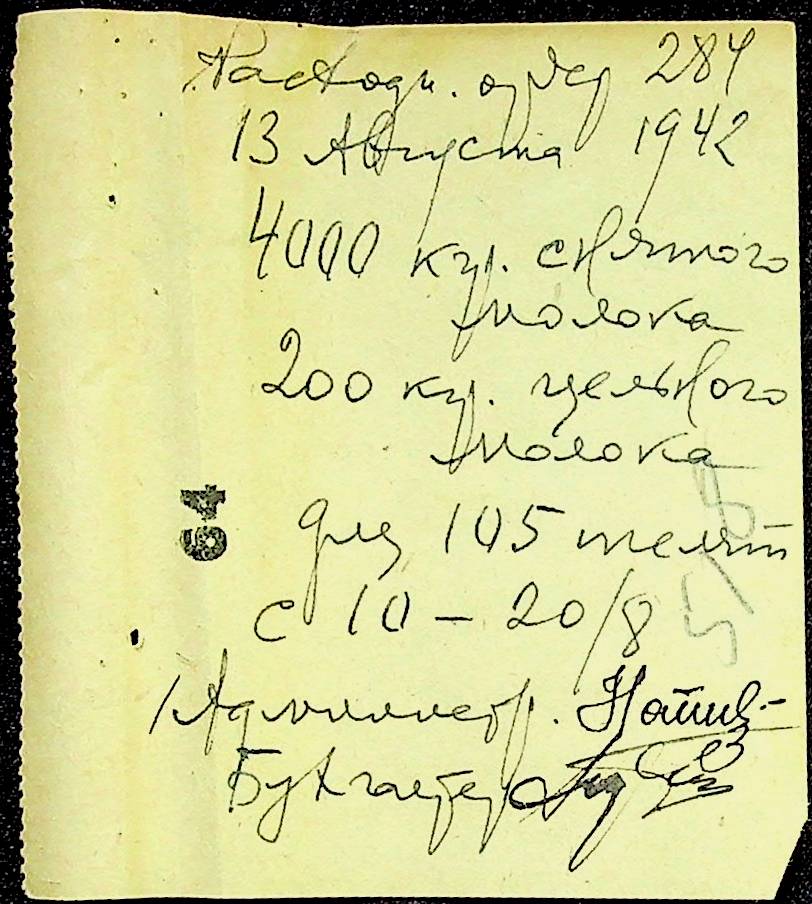 Расходн. ордер 284
13 Августа 1942
4000 кгр. снятого
молока
200 кгр. цельного
молока
64
для 105 телят
с 10 – 20/8
Администр.
Бухгалтер